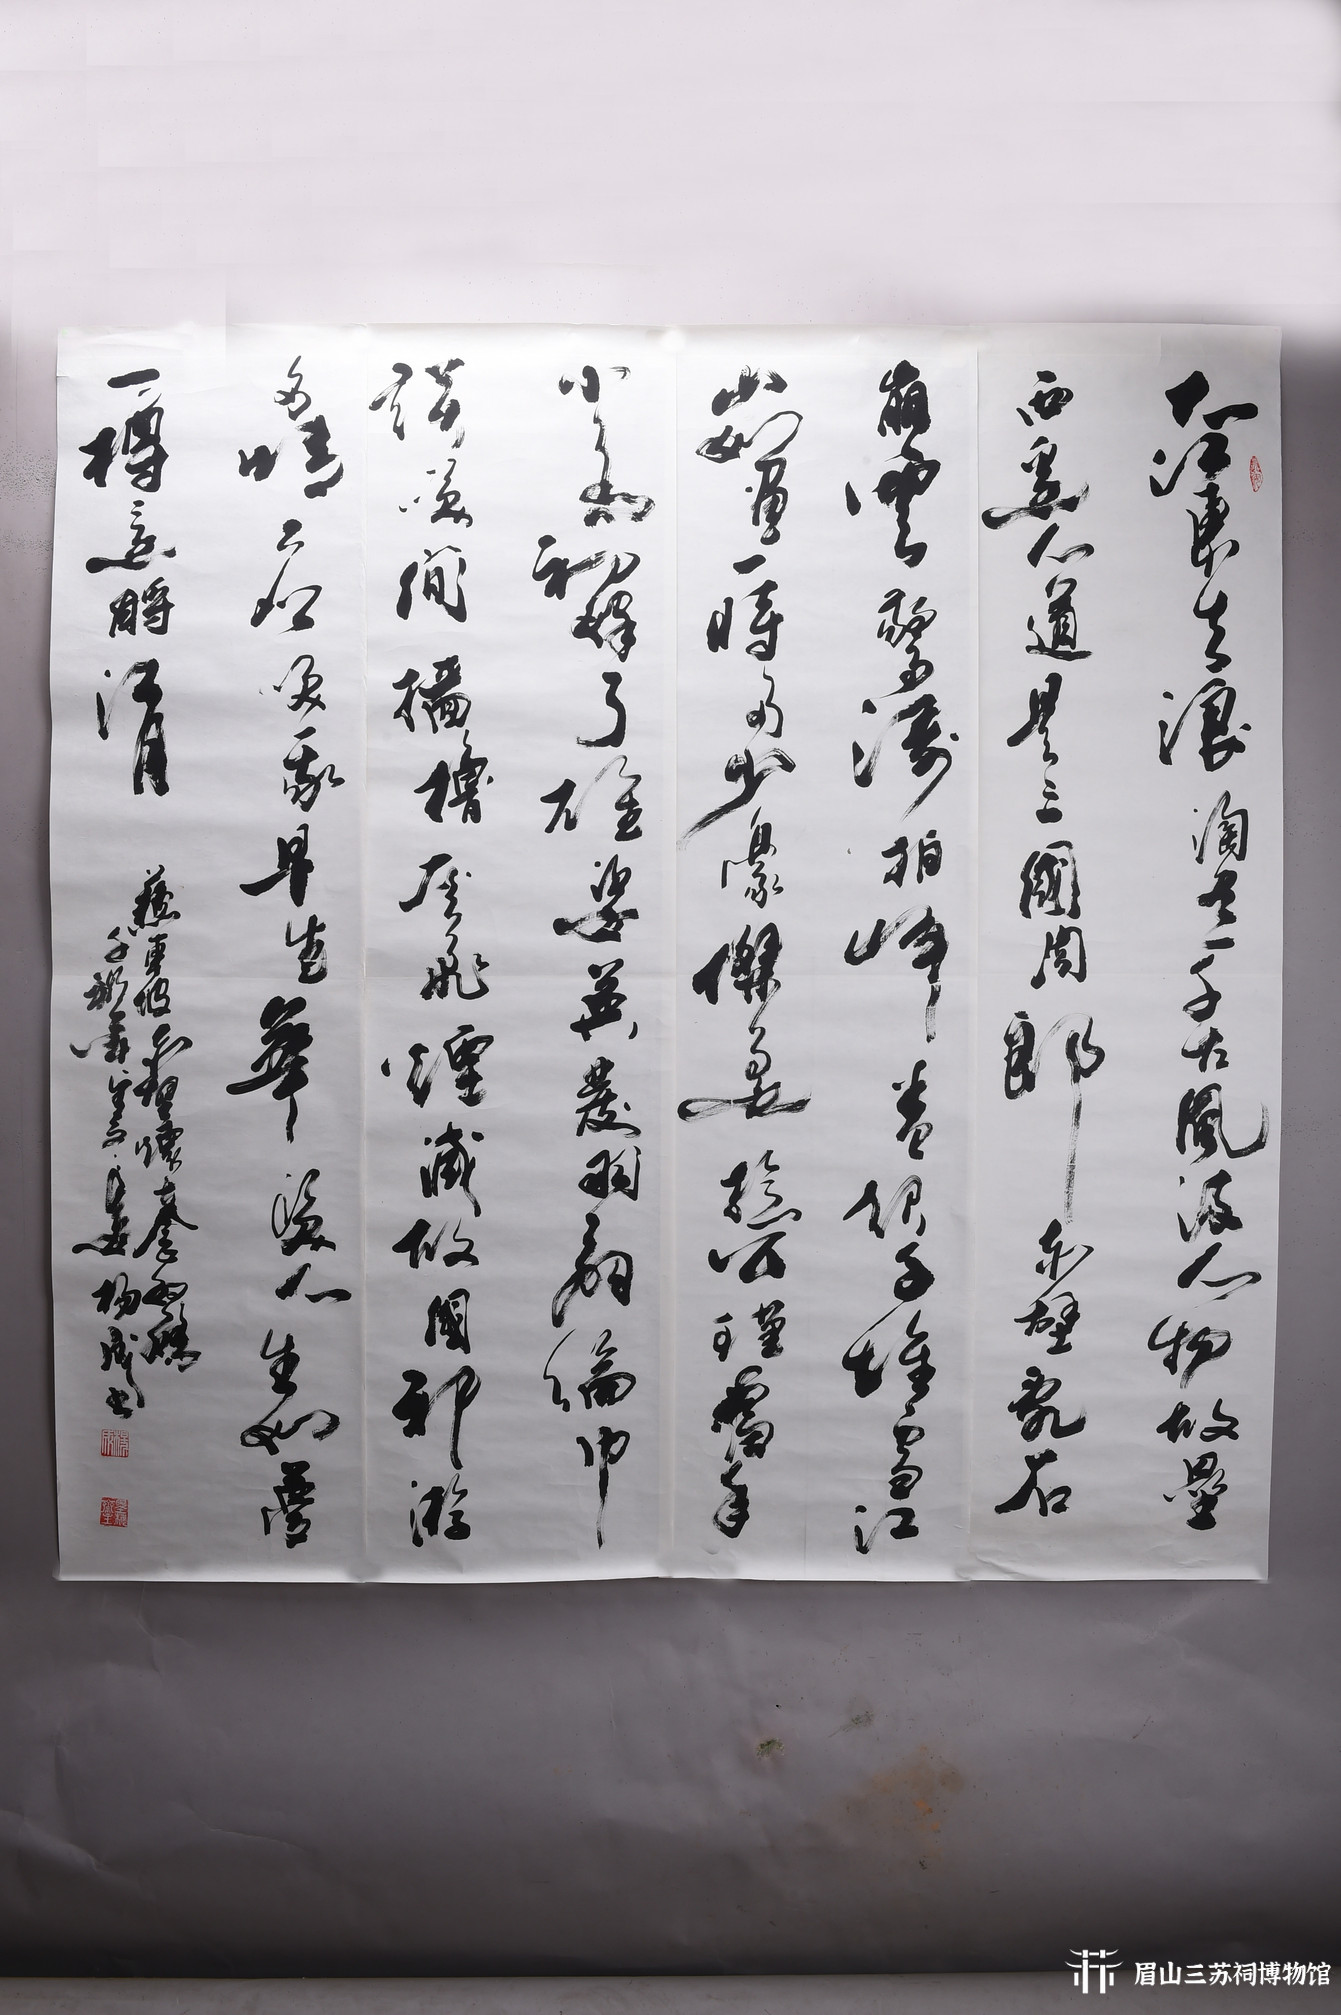 大江東去浪淘盡千古風流人物故壘
西邊人道是三國周郎赤壁亂石
崩雲驚濤拍岸卷起千堆雪江
山如畫一時多少豪傑遙想公瑾當年
小喬初嫁了雄姿英發羽扇綸巾
談笑間檣櫓灰飛煙滅故國神游
多情應如笑我早生華髮人生如夢
一樽還酹江月
蘇東坡赤壁懷古
楊
書
眉山三苏祠博物馆